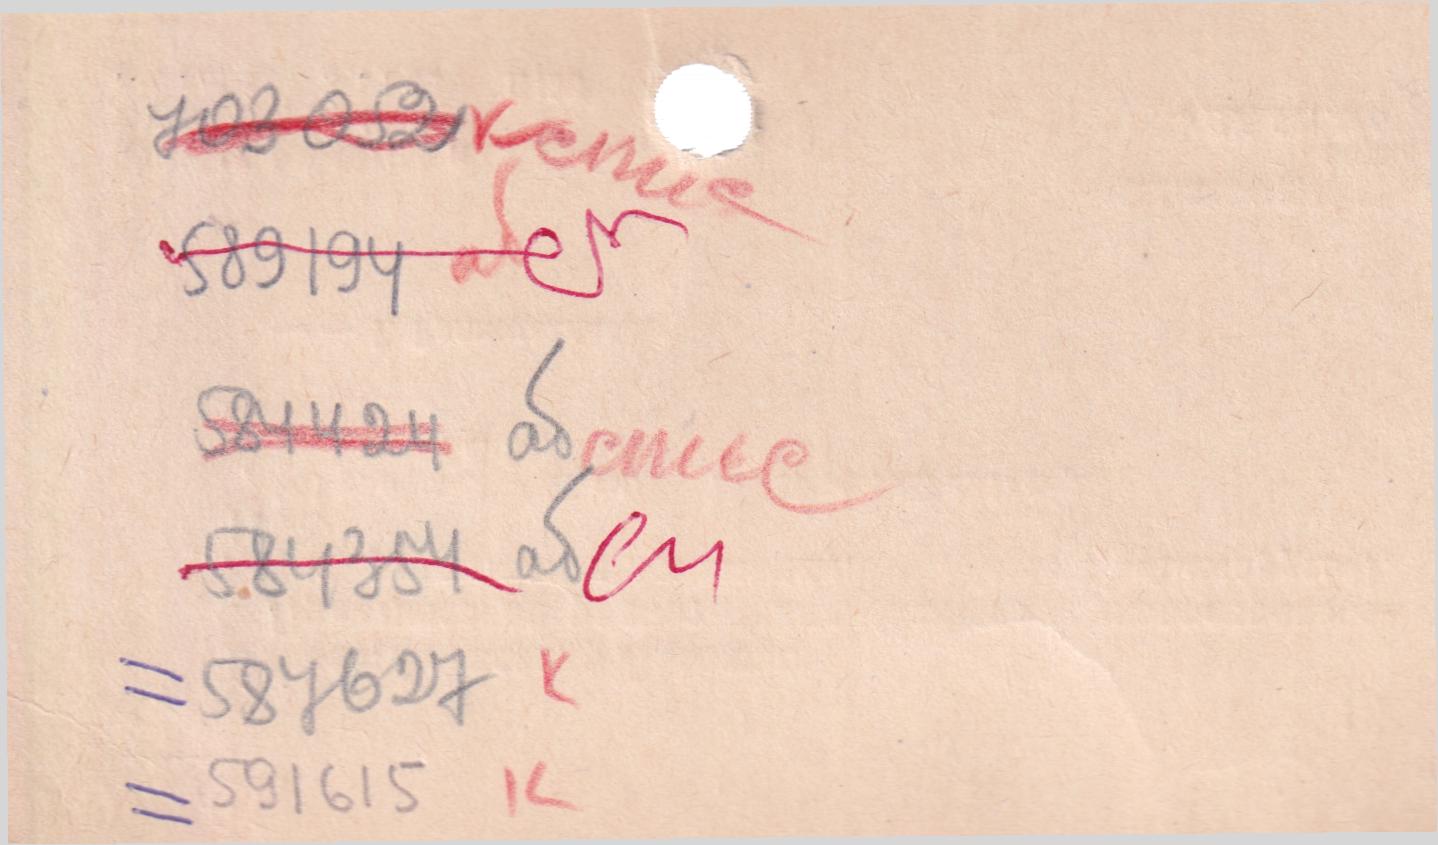 703052 к
589194 аб
584424 аб
584354 аб см
= 587627 к
= 591615 к